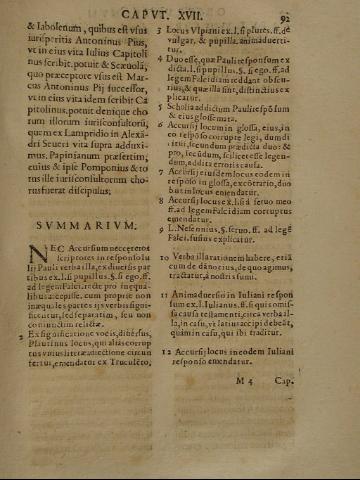 CAPVT. XVII.
92
& Iabolenum, quibus est vsus
iurisperitis Antoninus Pius,
vt in eius vita Iulius Capitoli
nus scribit. potuit & Scæuola,
quo præceptore vsus est Mar-
cus Antoninus Pij successor,
vt in eius vita idem scribit Ca
pitolinus, potuit denique cho-
rum illorum iurisconsultorū,
quem ex Lampridio in Alexā-
dri Seueri vita supra adduxi-
mus, Papinianum præsertim,
cuius & ipse Pomponius & to
tus ille iurisconsultorum cho-
rus fuerat discipulus;
SVMMARIVM.
NEC Accursum nec cęteros
scriptores in responso Iu
lij Pauli verba illa, ex diuersis par
tibus ex l. si pupillus. §. si ego. ff.
ad legem Falci. recte pro inęqua-
libus accepisse. cum proprie non
inæquales partes ijs verbis signi-
ficētur, sed separatim, seu non
coniunctim relictæ.
2 Ex significatione vocis, diuersus,
Plautinus locus, qui alias corrup
tus vnius literæ adiectione circun
fertur, emendatur ex Truculēto,
3 Locus Vlpiani ex. l. si plures. ff. de
vulgar, & pupilla. animaduerti-
tur.
4 Duo esse, quæ Pauli responsum ex
dicta. l. si pupillus. §. si ego. ff. ad
legem Falcidiam reddant obscu-
rius, & quæ illa sint, distinctius ex
plicatur.
5 Scholia addictum Pauli respōsum
& eius glossemata.
6 Accursij locum in glossa, eius, in
eo responso corrupte legi, dum di
citur, secundum prædicta duo: &
pro, secūdum, scilicet esse legen-
dum, addita erroris causa.
7 Accursij eiusdem locus eodem in
responso in glossa, excōtrario, duo
bus in locis emendatur.
8 Accursij locus ex. l. si à seruo meo
ff. ad legem Falcidiam corruptus
emendatur.
9 L. Nesennius, §. seruo. ff. ad legē
Falci. fusius explicatur.
10 Verba illa rationem habere, etiā
cum de dānorius, de quo agimus,
tractatur, à nostris sumi.
11 Animaduersio in Iuliani respon
sum ex. l. Iulianus. ff. si quis omis-
sa causa testamenti, circa verba il-
la, in casu, vt latius accipi debeāt,
quàm in casu, qui ibi traditur.
12 Accursij locus in eodem Iuliani
responso emendatur.
M 4 Cap.